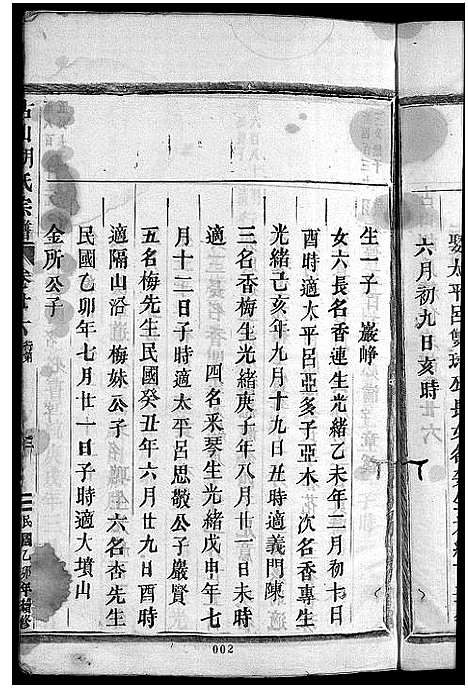 六月初九日亥時
生一子 巖崢
女六長名香連生光緒乙未年二月初十日
酉時適太平呂亞多子亞木 次名香專生
光緒己亥年九月十九日丑時適義門陳
三名香梅生光緒庚子年八月廿一日未時
適 四名釆琴生光緒戊申年七
月十二日子時適太平呂思敬公子巖賢
五名梅先生民國癸丑年六月廿九日酉時
適隔山沿 梅妹公子 六名杏先生
民國乙卯年七月廿一日子時適大墳山
金所公子
古山胡氏宗譜
民國乙卯年重修
002